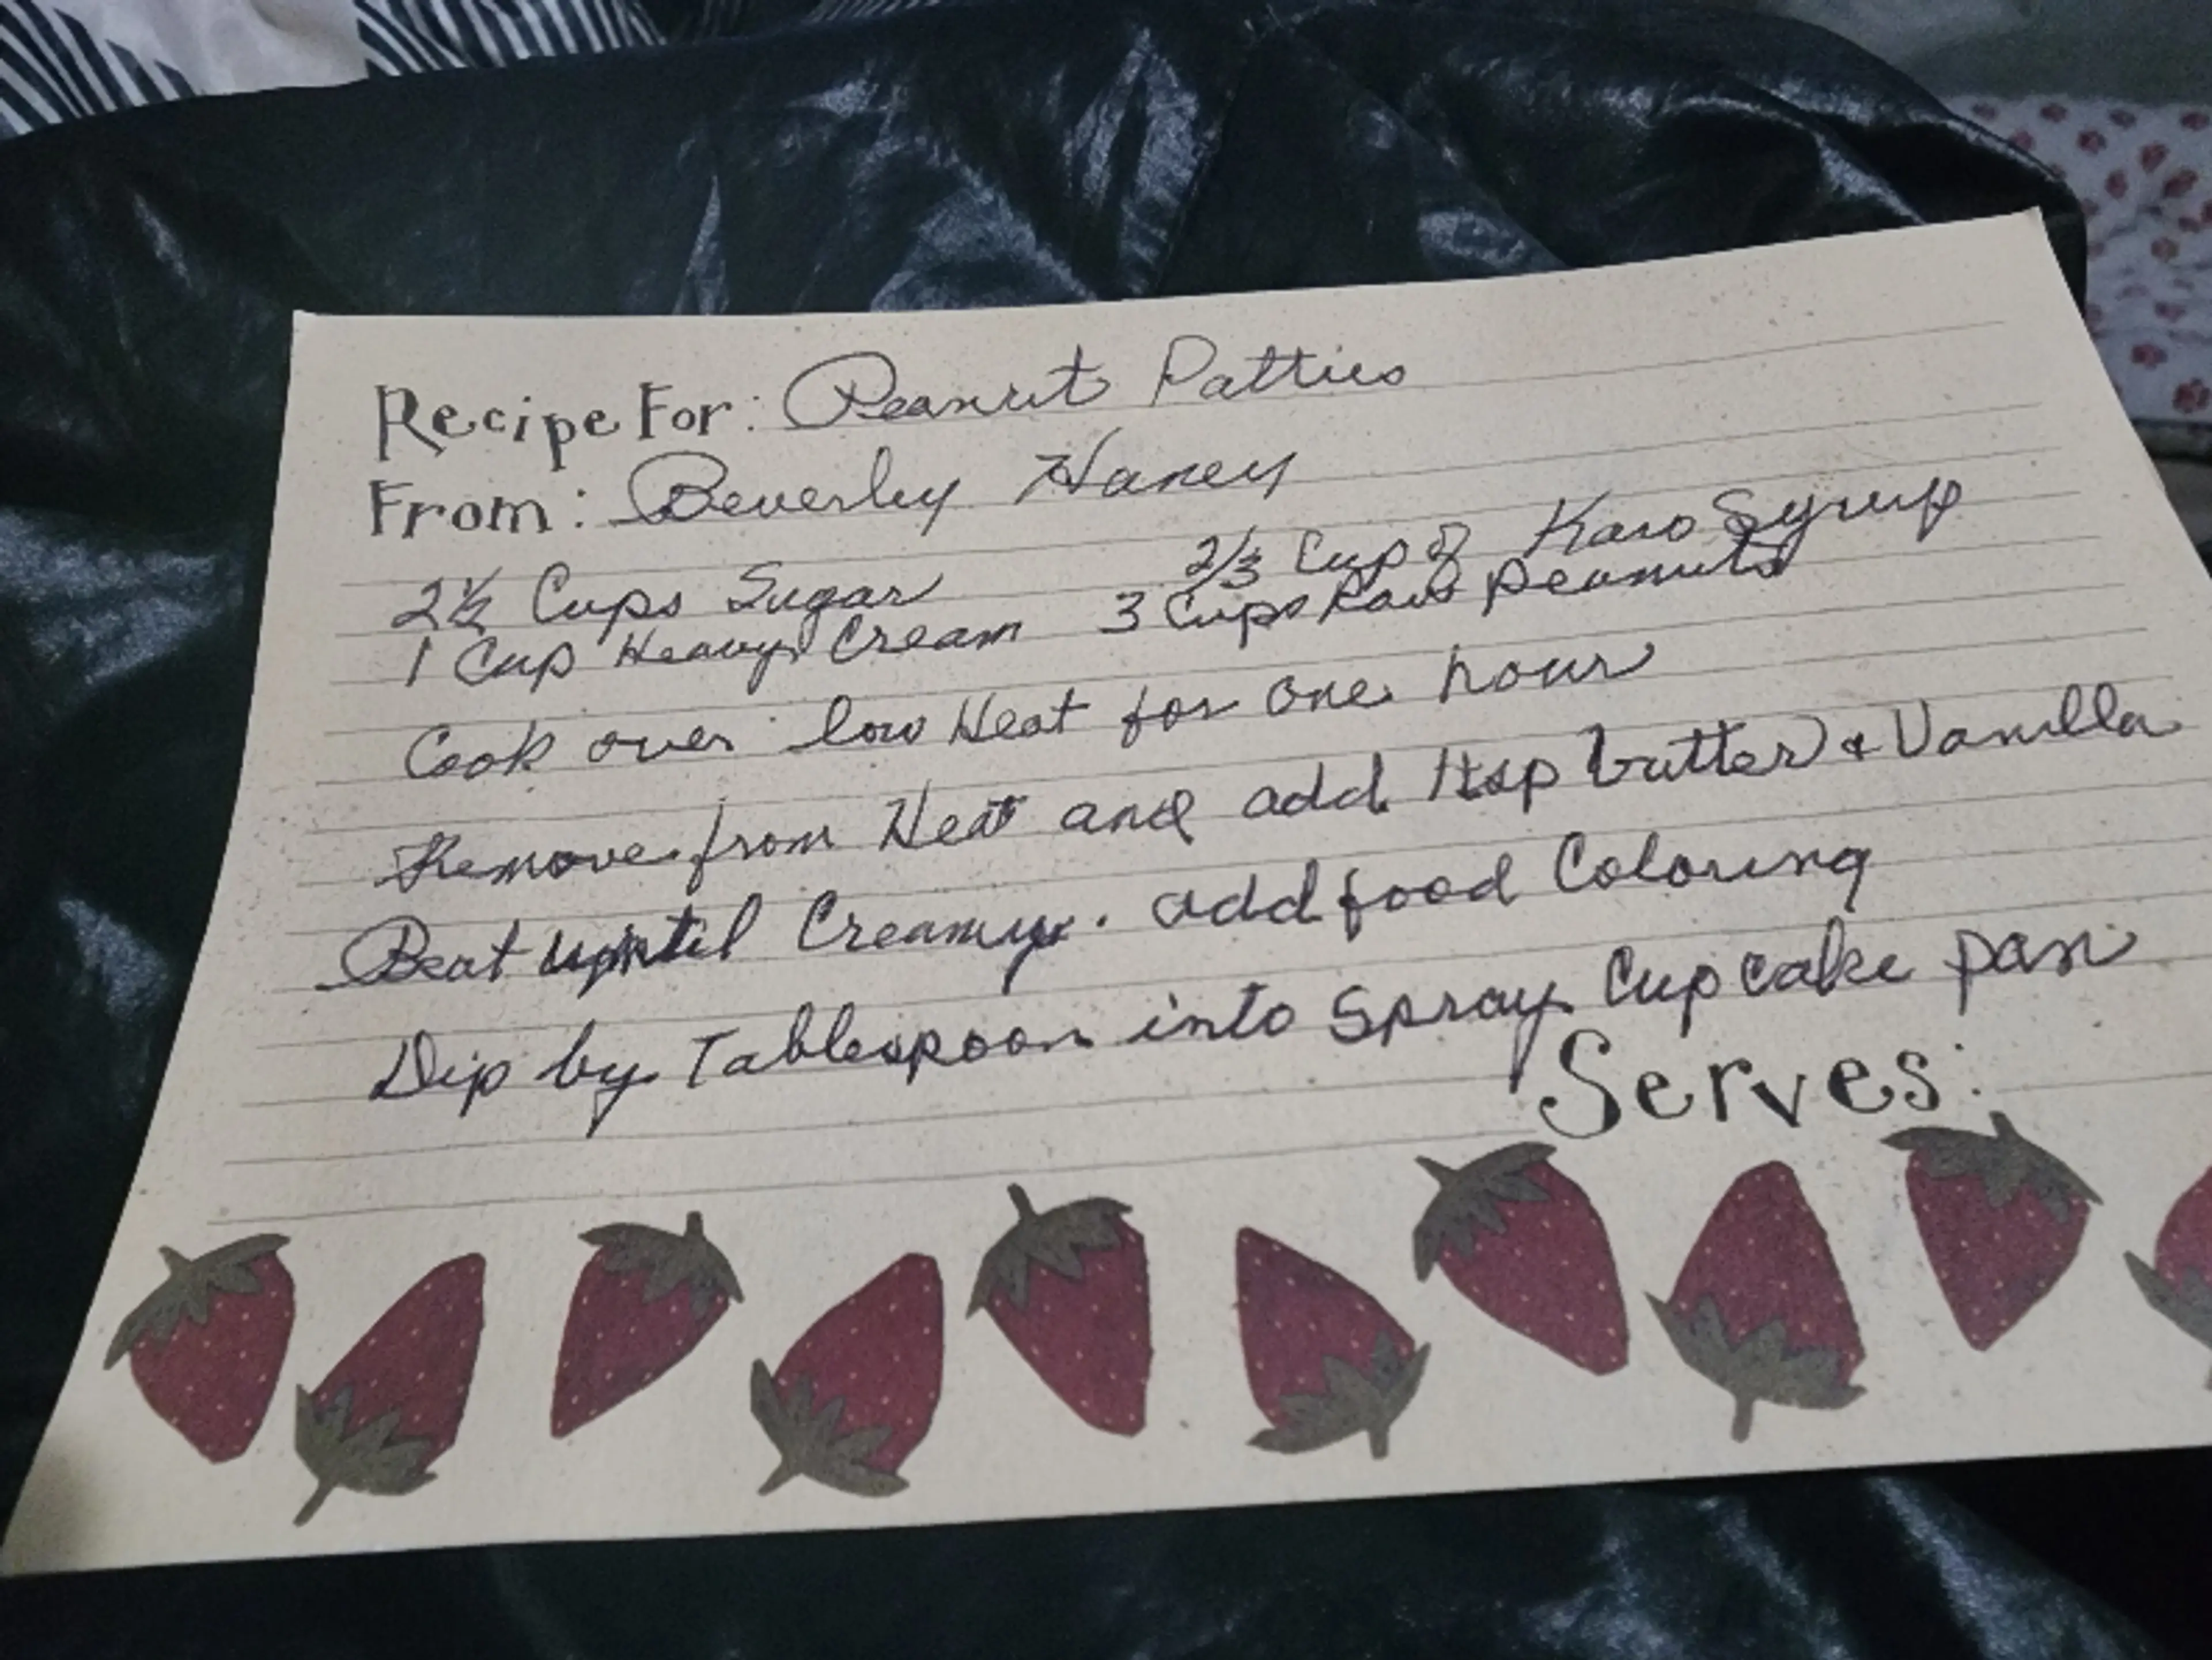 Recipe For: Peanut Patties
From: Beverley Haney
2½ Cups Sugar 2/3 Cup of Karo Syrup
1 Cup Heavy Cream 3 Cups Raw peanuts
Cook over low Heat for one hour
Remove from Heat and add 1tsp butter & Vanilla
Beat until Creamy. add food Coloring
Dip by Tablespoon into Spray Cupcake pan
Serves: